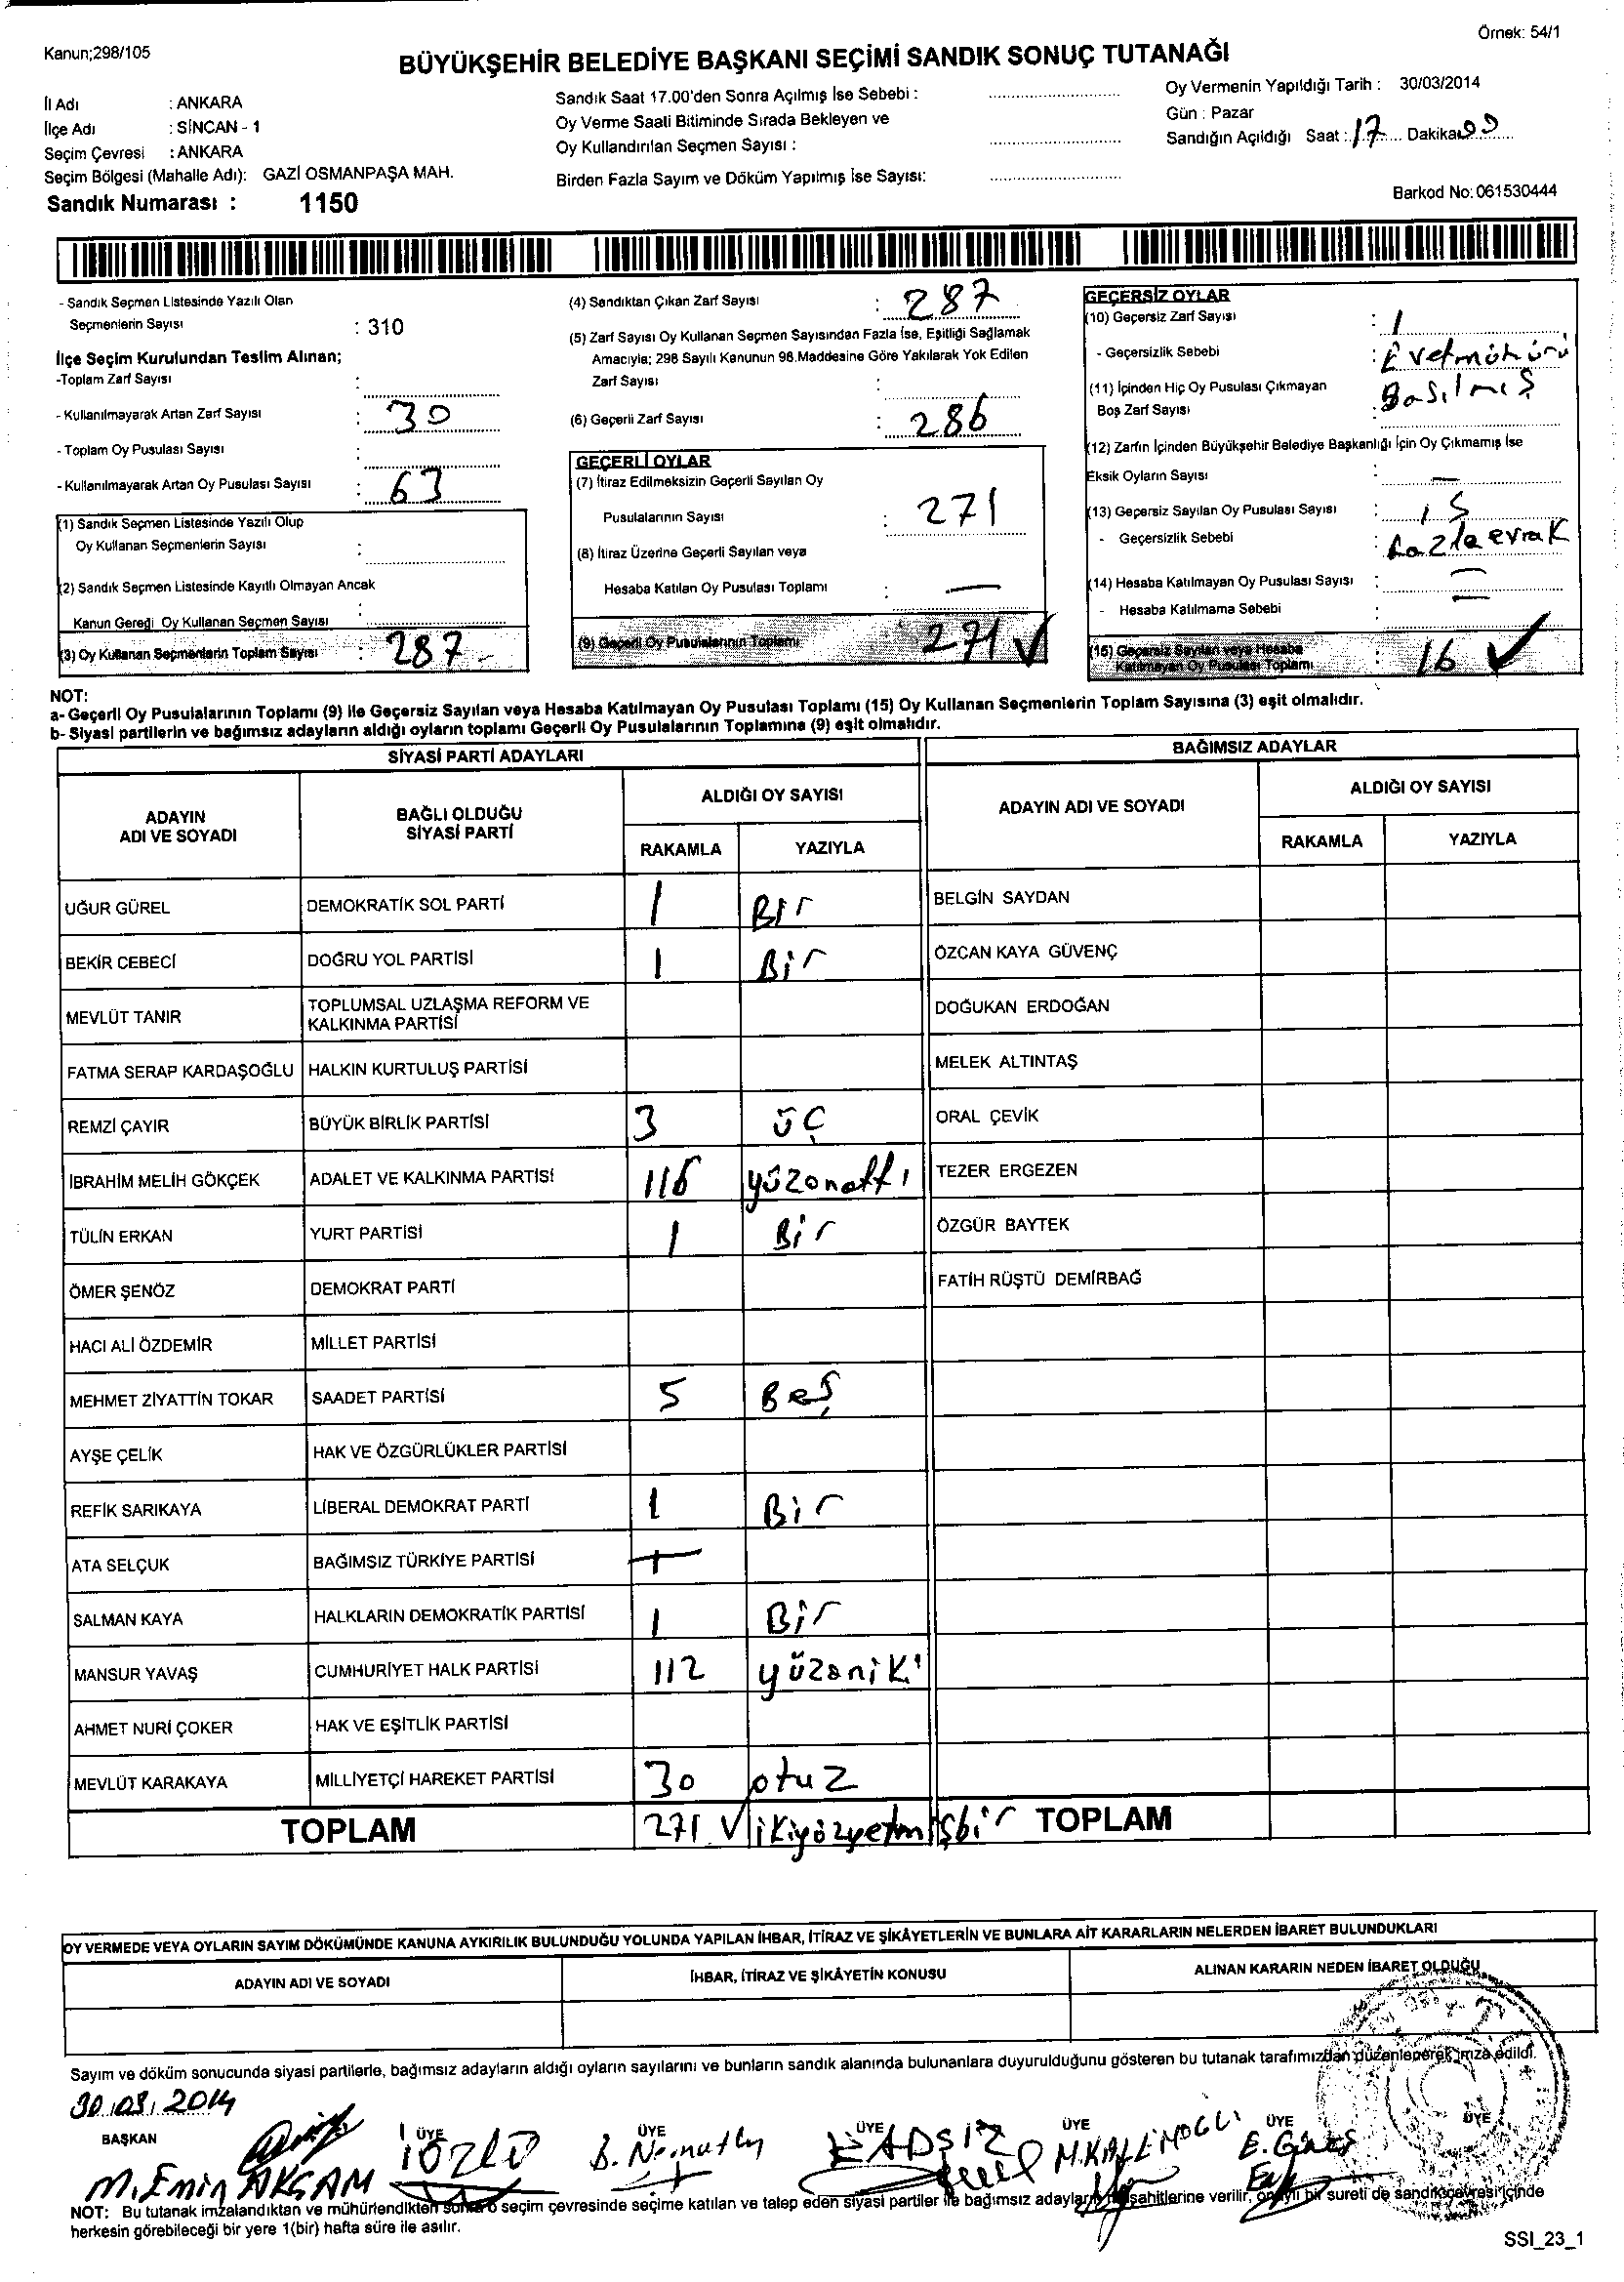 Örnek: 54/1
Kanun;298/105
BÜYÜKŞEHİR BELEDİYE BAŞKANI SEÇİMİ SANDIK SONUÇ TUTANAĞI
İl Adı : ANKARA
İlçe Adı : SİNCAN - 1
Seçim Çevresi : ANKARA
Seçim Bölgesi (Mahalle Adı): GAZİ OSMANPAŞA MAH.
Sandık Numarası : 1150
Sandık Saat 17.00'den Sonra Açılmış İse Sebebi :
Oy Verme Saati Bitiminde Sırada Bekleyen ve
Oy Kullandırılan Seçmen Sayısı :
Birden Fazla Sayım ve Döküm Yapılmış İse Sayısı:
Oy Vermenin Yapıldığı Tarih : 30/03/2014
Gün : Pazar
Sandığın Açıldığı Saat : 17 Dakika 00
Barkod No: 061530444
- Sandık Seçmen Listesinde Yazılı Olan
Seçmenlerin Sayısı : 310
İlçe Seçim Kurulundan Teslim Alınan;
-Toplam Zarf Sayısı :
- Kullanılmayarak Artan Zarf Sayısı : 30
- Toplam Oy Pusulası Sayısı :
- Kullanılmayarak Artan Oy Pusulası Sayısı : 63
(1) Sandık Seçmen Listesinde Yazılı Olup
Oy Kullanan Seçmenlerin Sayısı :
(2) Sandık Seçmen Listesinde Kayıtlı Olmayan Ancak
Kanun Gereği Oy Kullanan Seçmen Sayısı :
(3) Oy Kullanan Seçmenlerin Toplam Sayısı : 287
(4) Sandıktan Çıkan Zarf Sayısı : 287
(5) Zarf Sayısı Oy Kullanan Seçmen Sayısından Fazla İse, Eşitliği Sağlamak
Amacıyla; 298 Sayılı Kanunun 98.Maddesine Göre Yakılarak Yok Edilen
Zarf Sayısı :
(6) Geçerli Zarf Sayısı : 286
GEÇERLİ OYLAR
(7) İtiraz Edilmeksizin Geçerli Sayılan Oy
Pusulalarının Sayısı : 271
(8) İtiraz Üzerine Geçerli Sayılan veya
Hesaba Katılan Oy Pusulası Toplamı : —
(9) Geçerli Oy Pusulalarının Toplamı 271 ✓
GEÇERSİZ OYLAR
(10) Geçersiz Zarf Sayısı : 1
- Geçersizlik Sebebi : Evetmühürü
(11) İçinden Hiç Oy Pusulası Çıkmayan Basılmış
Boş Zarf Sayısı :
(12) Zarfın İçinden Büyükşehir Belediye Başkanlığı İçin Oy Çıkmamış İse
Eksik Oyların Sayısı : —
(13) Geçersiz Sayılan Oy Pusulası Sayısı : 15
- Geçersizlik Sebebi : fazla evrak
(14) Hesaba Katılmayan Oy Pusulası Sayısı : —
- Hesaba Katılmama Sebebi : —
(15) Geçersiz Sayılan veya Hesaba
Katılmayan Oy Pusulası Toplamı : 16 ✓
NOT:
a- Geçerli Oy Pusulalarının Toplamı (9) ile Geçersiz Sayılan veya Hesaba Katılmayan Oy Pusulası Toplamı (15) Oy Kullanan Seçmenlerin Toplam Sayısına (3) eşit olmalıdır.
b- Siyasi partilerin ve bağımsız adayların aldığı oyların toplamı Geçerli Oy Pusulalarının Toplamına (9) eşit olmalıdır.
SİYASİ PARTİ ADAYLARI
ADAYIN ADI VE SOYADI
BAĞLI OLDUĞU SİYASİ PARTİ
ALDIĞI OY SAYISI
RAKAMLA YAZIYLA
UĞUR GÜREL DEMOKRATİK SOL PARTİ 1 Bir
BEKİR CEBECİ DOĞRU YOL PARTİSİ 1 Bir
MEVLÜT TANIR TOPLUMSAL UZLAŞMA REFORM VE KALKINMA PARTİSİ
FATMA SERAP KARDAŞOĞLU HALKIN KURTULUŞ PARTİSİ
REMZİ ÇAYIR BÜYÜK BİRLİK PARTİSİ 3 üç
İBRAHİM MELİH GÖKÇEK ADALET VE KALKINMA PARTİSİ 116 yüzonaltı
TÜLİN ERKAN YURT PARTİSİ 1 Bir
ÖMER ŞENÖZ DEMOKRAT PARTİ
HACI ALİ ÖZDEMİR MİLLET PARTİSİ
MEHMET ZİYATTİN TOKAR SAADET PARTİSİ 5 Beş
AYŞE ÇELİK HAK VE ÖZGÜRLÜKLER PARTİSİ
REFİK SARIKAYA LİBERAL DEMOKRAT PARTİ 1 Bir
ATA SELÇUK BAĞIMSIZ TÜRKİYE PARTİSİ
SALMAN KAYA HALKLARIN DEMOKRATİK PARTİSİ 1 Bir
MANSUR YAVAŞ CUMHURİYET HALK PARTİSİ 112 yüzoniki
AHMET NURİ ÇOKER HAK VE EŞİTLİK PARTİSİ
MEVLÜT KARAKAYA MİLLİYETÇİ HAREKET PARTİSİ 30 otuz
TOPLAM 271 ✓ ikiyüzyetmişbir
BAĞIMSIZ ADAYLAR
ADAYIN ADI VE SOYADI
ALDIĞI OY SAYISI
RAKAMLA YAZIYLA
BELGİN SAYDAN
ÖZCAN KAYA GÜVENÇ
DOĞUKAN ERDOĞAN
MELEK ALTINTAŞ
ORAL ÇEVİK
TEZER ERGEZEN
ÖZGÜR BAYTEK
FATİH RÜŞTÜ DEMİRBAĞ
TOPLAM
OY VERMEDE VEYA OYLARIN SAYIM DÖKÜMÜNDE KANUNA AYKIRILIK BULUNDUĞU YOLUNDA YAPILAN İHBAR, İTİRAZ VE ŞİKÂYETLERİN VE BUNLARA AİT KARARLARIN NELERDEN İBARET BULUNDUKLARI
ADAYIN ADI VE SOYADI İHBAR, İTİRAZ VE ŞİKÂYETİN KONUSU ALINAN KARARIN NEDEN İBARET OLDUĞU
Sayım ve döküm sonucunda siyasi partilerle, bağımsız adayların aldığı oyların sayılarını ve bunların sandık alanında bulunanlara duyurulduğunu gösteren bu tutanak tarafımızdan düzenlenerek imza edildi.
30.03.2014
BAŞKAN ÜYE ÜYE ÜYE ÜYE ÜYE ÜYE
M. Emin AKŞAM
NOT: Bu tutanak imzalandıktan ve mühürlendikten sonra o seçim çevresinde seçime katılan ve talep eden siyasi partiler ile bağımsız adayların müşahitlerine verilir, onaylı bir sureti de sandık çevresi içinde
herkesin görebileceği bir yere 1(bir) hafta süre ile asılır.
SSI_23_1